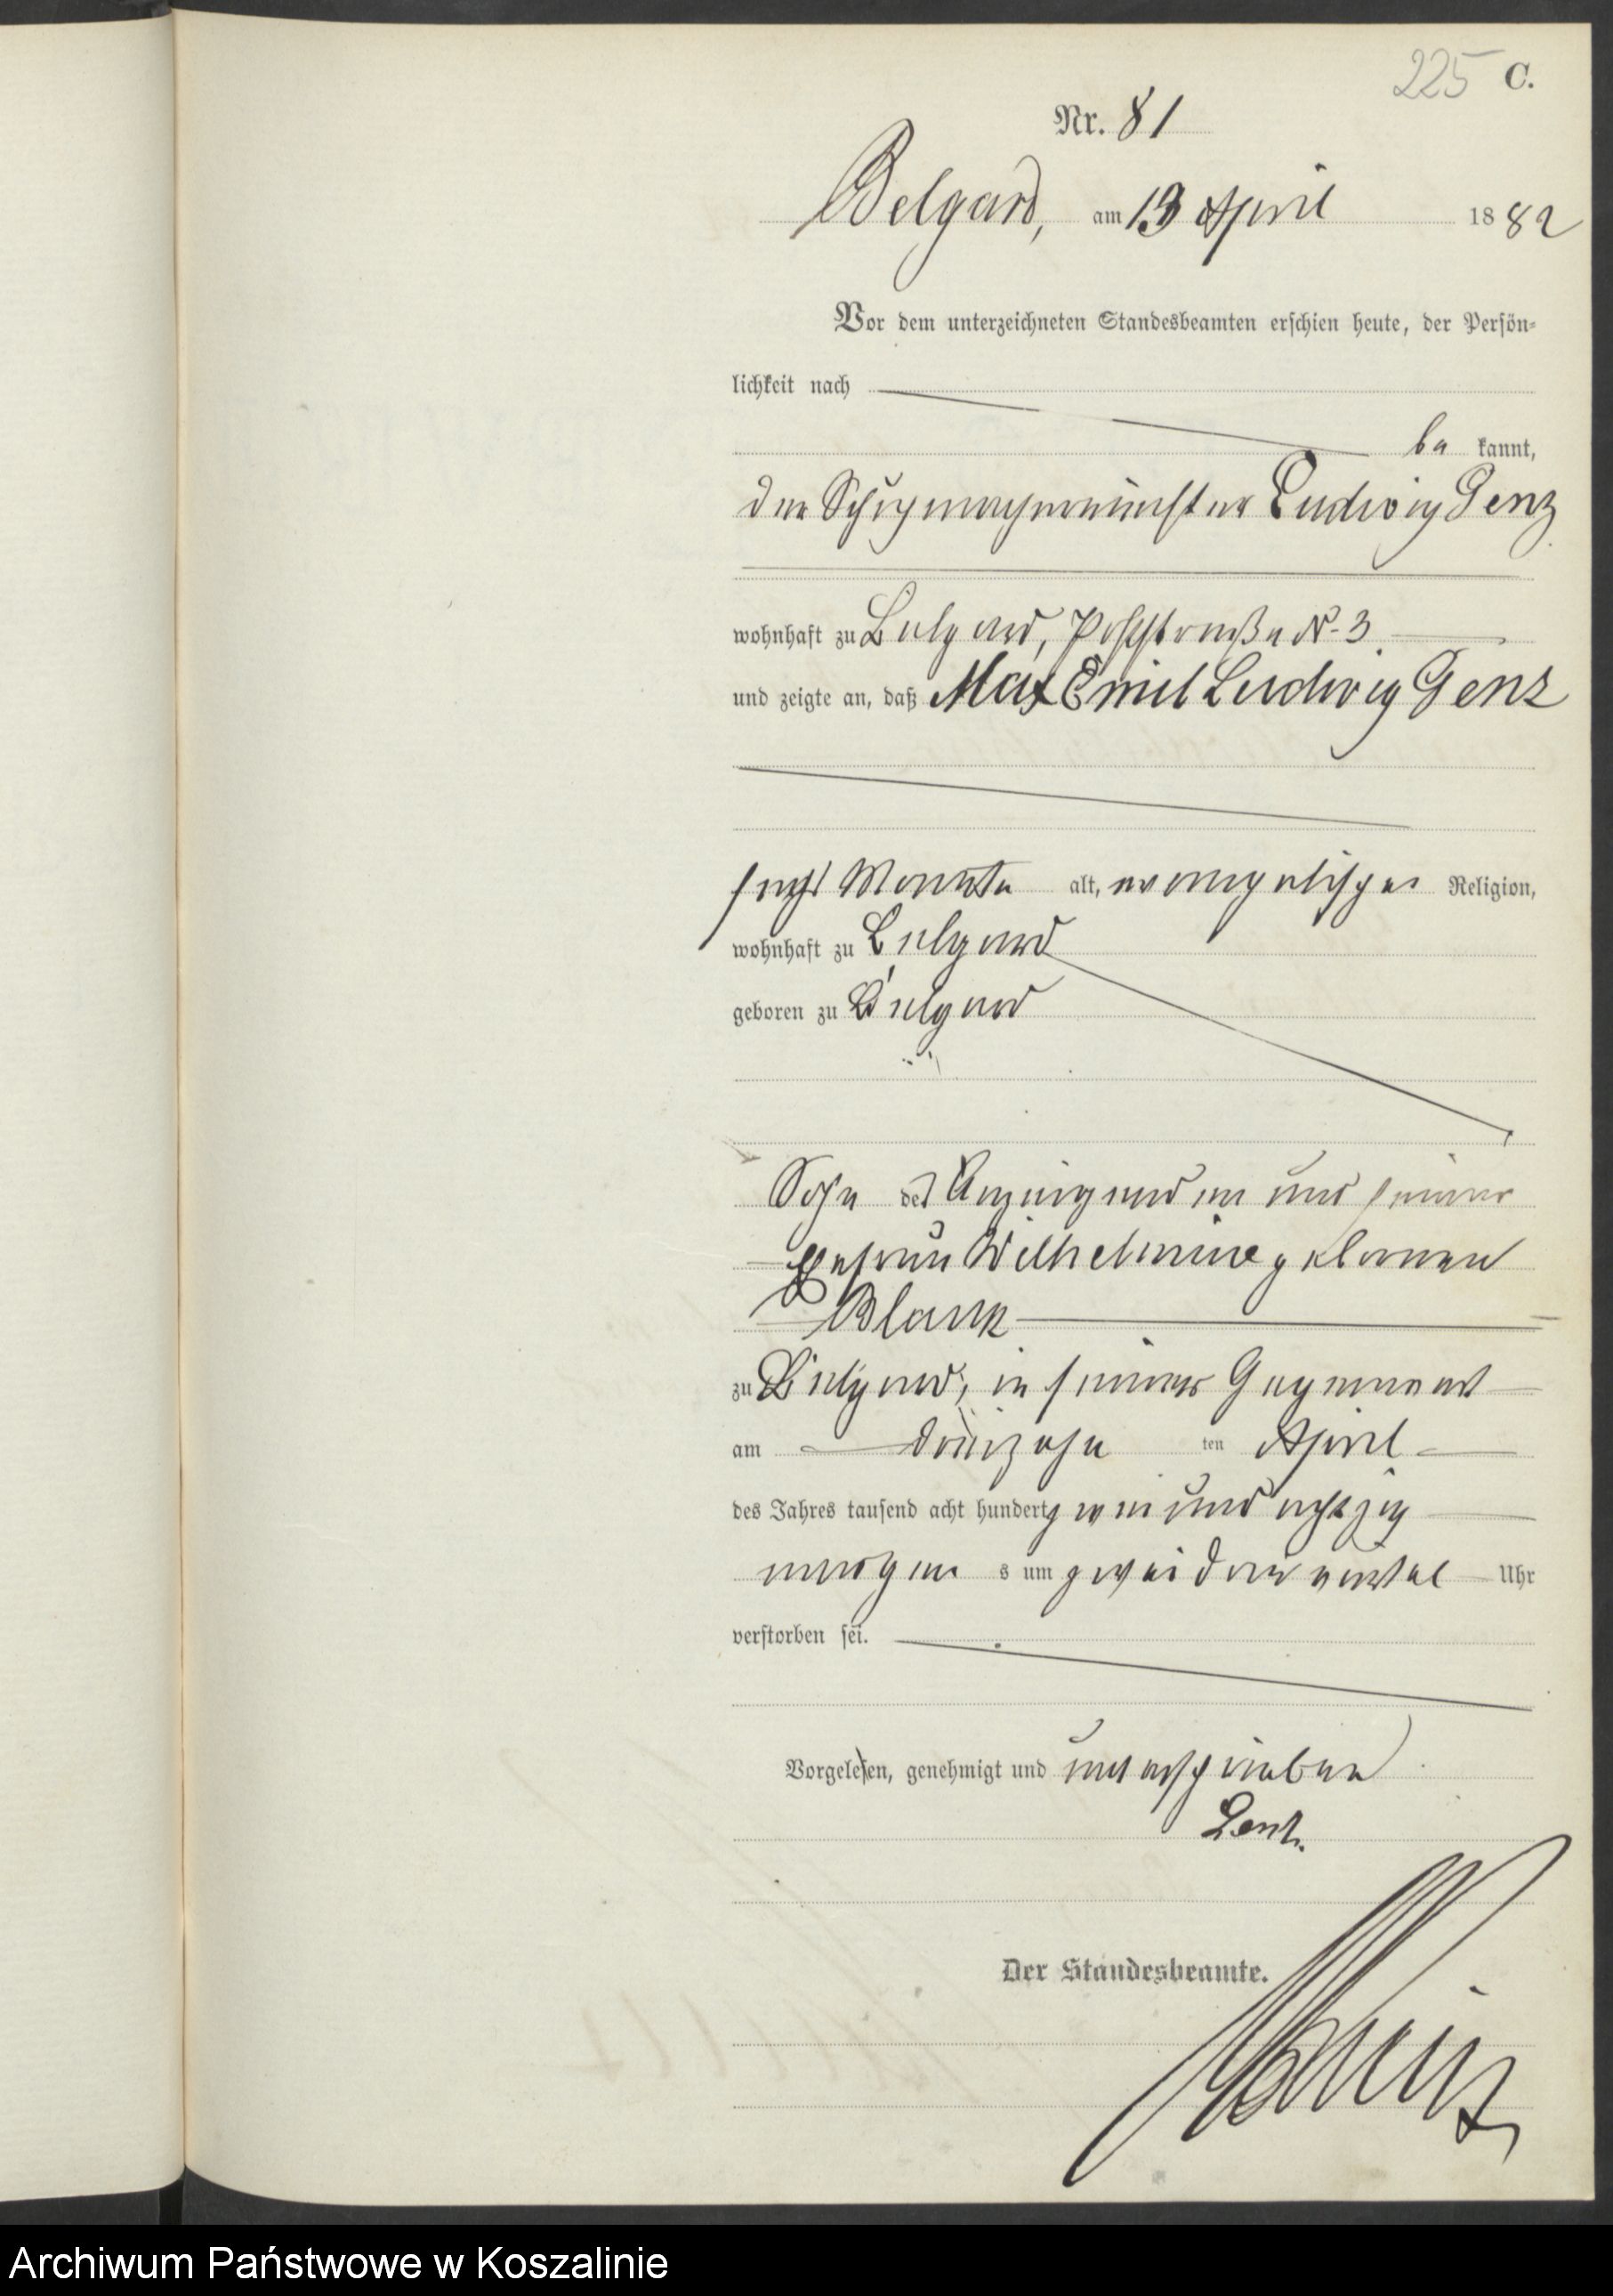 225 C.
Nr. 81
Belgard, am 13 April 1882
Vor dem unterzeichneten Standesbeamten erschien heute, der Persön-
lichkeit nach
be kannt,
der Schuhmachermeister Ludwig Genz
wohnhaft zu Belgard, Poststraße N. 3
und zeigte an, daß Max Emil Ludwig Genz
sechs Monate alt, evangelischer Religion,
wohnhaft zu Belgard
geboren zu Belgard
Sohn des Anzeigenden und seiner
Ehefrau Wilhelmine geborenen
Blank
zu Belgard, in seiner Gegenwart
am dreizehn ten April
des Jahres tausend acht hundert zwei und achtzig
morgen s um zwei drei viertel Uhr
verstorben sei.
Vorgelesen, genehmigt und unterschrieben
Der Standesbeamte.
Archiwum Państwowe w Koszalinie